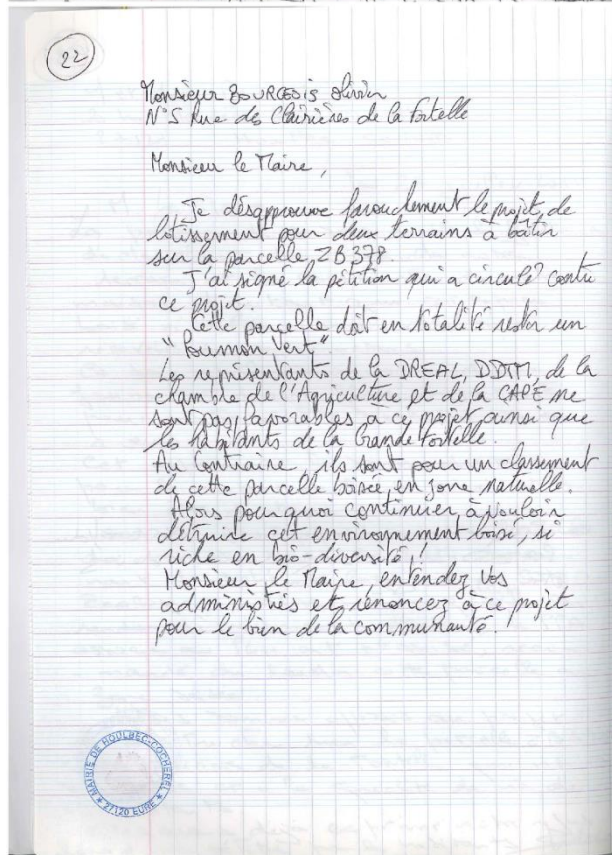 22
Monsieur BOURGEOIS Olivier
N°5 Rue des Clairières de la Fortelle
Monsieur le Maire,
Je désapprouve farouchement le projet de
lotissement pour deux terrains à bâtir
sur la parcelle ZB 378.
J'ai signé la pétition qui a circulé contre
ce projet.
Cette parcelle doit en totalité rester un
"Poumon vert".
Les représentants de la DREAL, DDTM, de la
chambre de l'Agriculture et de la CAPE ne
sont pas favorables à ce projet ainsi que
les habitants de la Grande Fortelle.
Au Contraire, ils sont pour un classement
de cette parcelle boisée en zone naturelle.
Alors pourquoi continuer à vouloir
détruire cet environnement boisé, si
riche en bio-diversité !
Monsieur le Maire, entendez vos
administrés et renoncez à ce projet
pour le bien de la communauté.
MAIRIE DE HOULBEC-COCHEREL
* 27120 EURE *